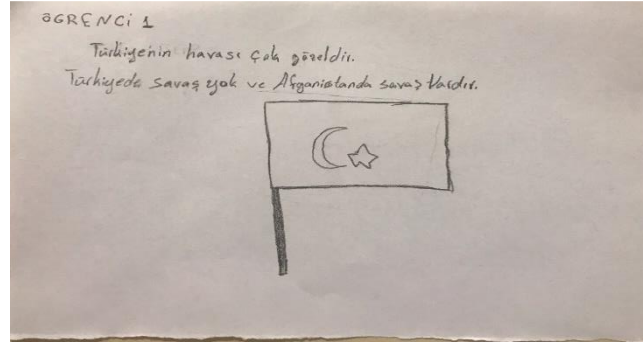 ÖGRENCİ 1
Türkiyenin havası çok güzeldir.
Türkiyede savaş yok ve Afganistanda savaş Vardır.